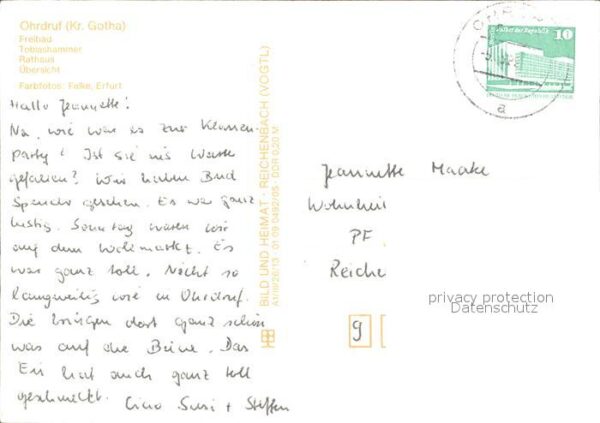 Ohrdruf (Kr. Gotha)
Freibad
Tobiashammer
Rathaus
Übersicht
Farbfotos: Felke, Erfurt
Hallo Jeannette!
Na, wie war es zur Klassen-
party? Ist sie ins Wasser
gefallen? Wir haben Bud
Spencer gesehen. Es war ganz
lustig. Sonntag waren wir
auf dem Wollmarkt. Es
war ganz toll. Nicht so
langweilig wie in Ohrdruf.
Die bringen dort ganz schön
was auf die Beine. Das
Eis hat auch ganz toll
geschmeckt. Ciao Susi + Steffen
BILD UND HEIMAT · REICHENBACH (VOGTL)
A1/III/26/13 01 09 0492/05 · DDR 0,20 M
10
a
Jeannette Maake
Wohnheim
PF
Reiche
privacy protection
Datenschutz
9